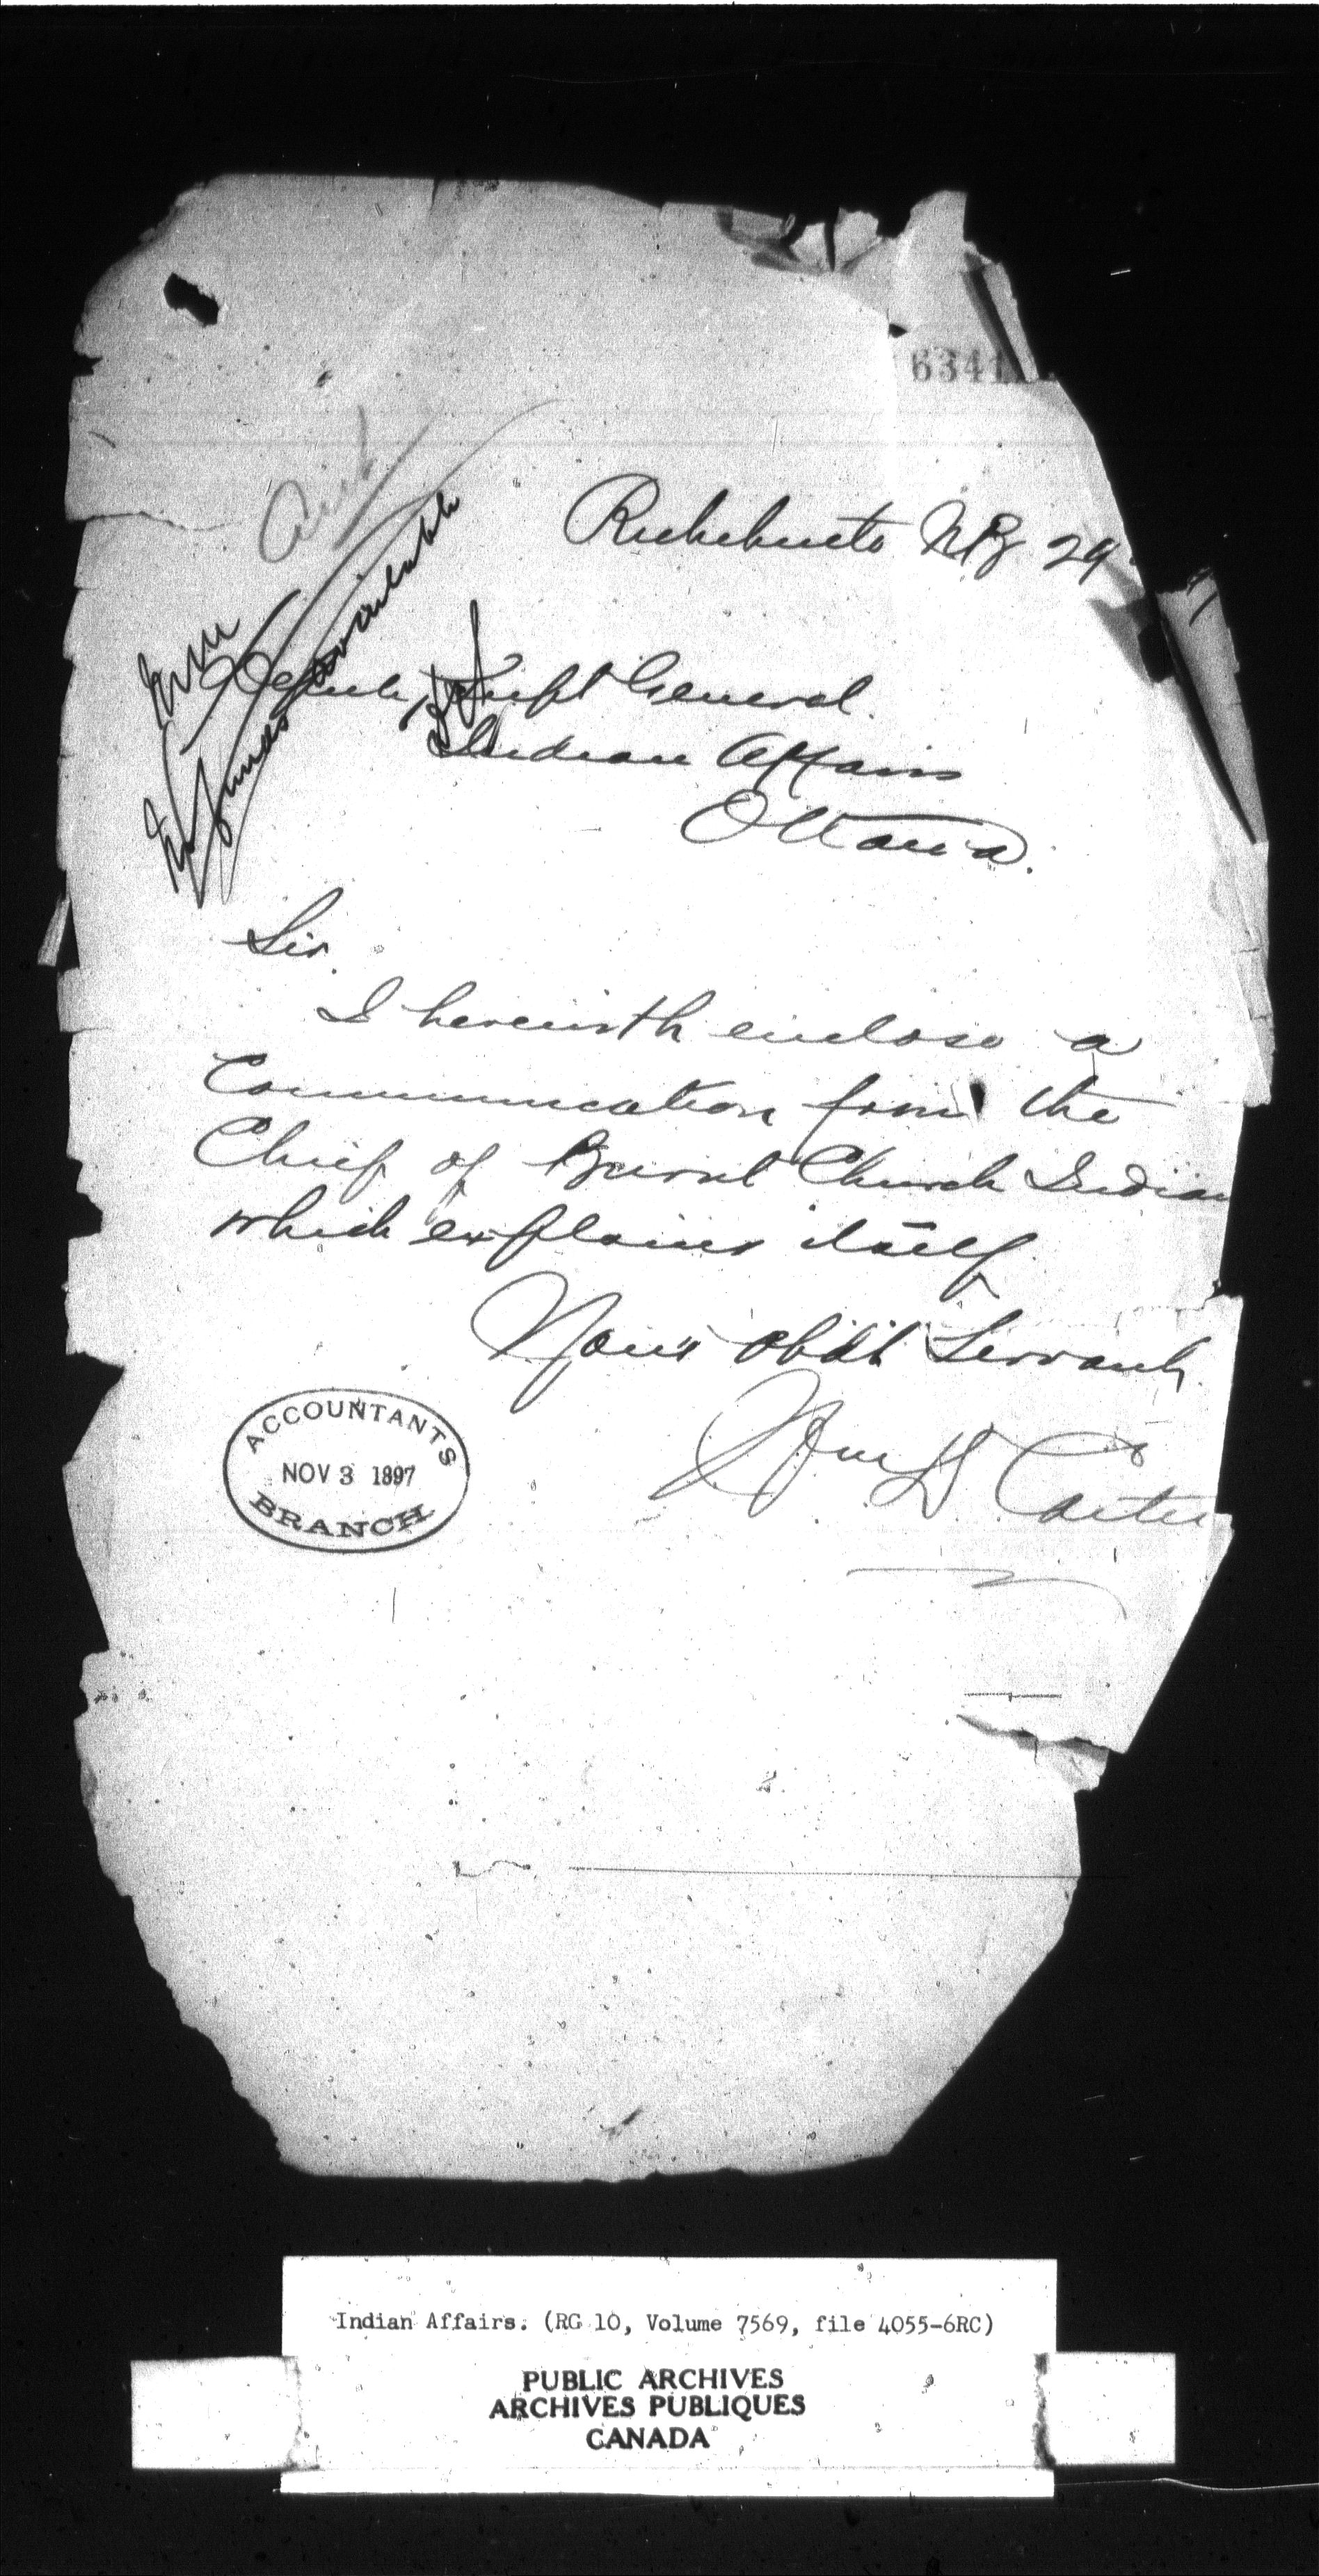 6341
Richibucto NB 29
Deputy Supt General.
Indian Affairs
Ottawa.
Sir.
I herewith enclose a
Communication from the
Chief of Burnt Church Indian
which explains itself.
Your obdt Servant,
Wm D Carter
ACCOUNTANTS
NOV 3 1897
BRANCH
Indian Affairs. (RG 10, Volume 7569, file 4055-6RC)
PUBLIC ARCHIVES
ARCHIVES PUBLIQUES
CANADA